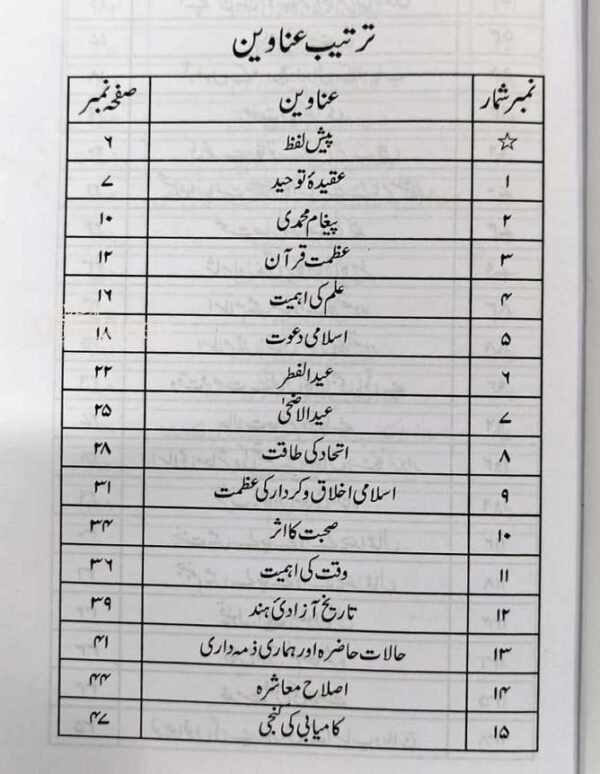 ترتیب عناوین
نمبر شمار عناوین صفحہ نمبر
☆ پیش لفظ ۶
۱ عقیدۂ توحید ۷
۲ پیغام محمدی ۱۰
۳ عظمت قرآن ۱۲
۴ علم کی اہمیت ۱۶
۵ اسلامی دعوت ۱۸
۶ عید الفطر ۲۲
۷ عید الاضحیٰ ۲۵
۸ اتحاد کی طاقت ۲۸
۹ اسلامی اخلاق و کردار کی عظمت ۳۱
۱۰ صحبت کا اثر ۳۴
۱۱ وقت کی اہمیت ۳۶
۱۲ تاریخ آزادیٔ ہند ۳۹
۱۳ حالات حاضرہ اور ہماری ذمہ داری ۴۱
۱۴ اصلاح معاشرہ ۴۴
۱۵ کامیابی کی کنجی ۴۷